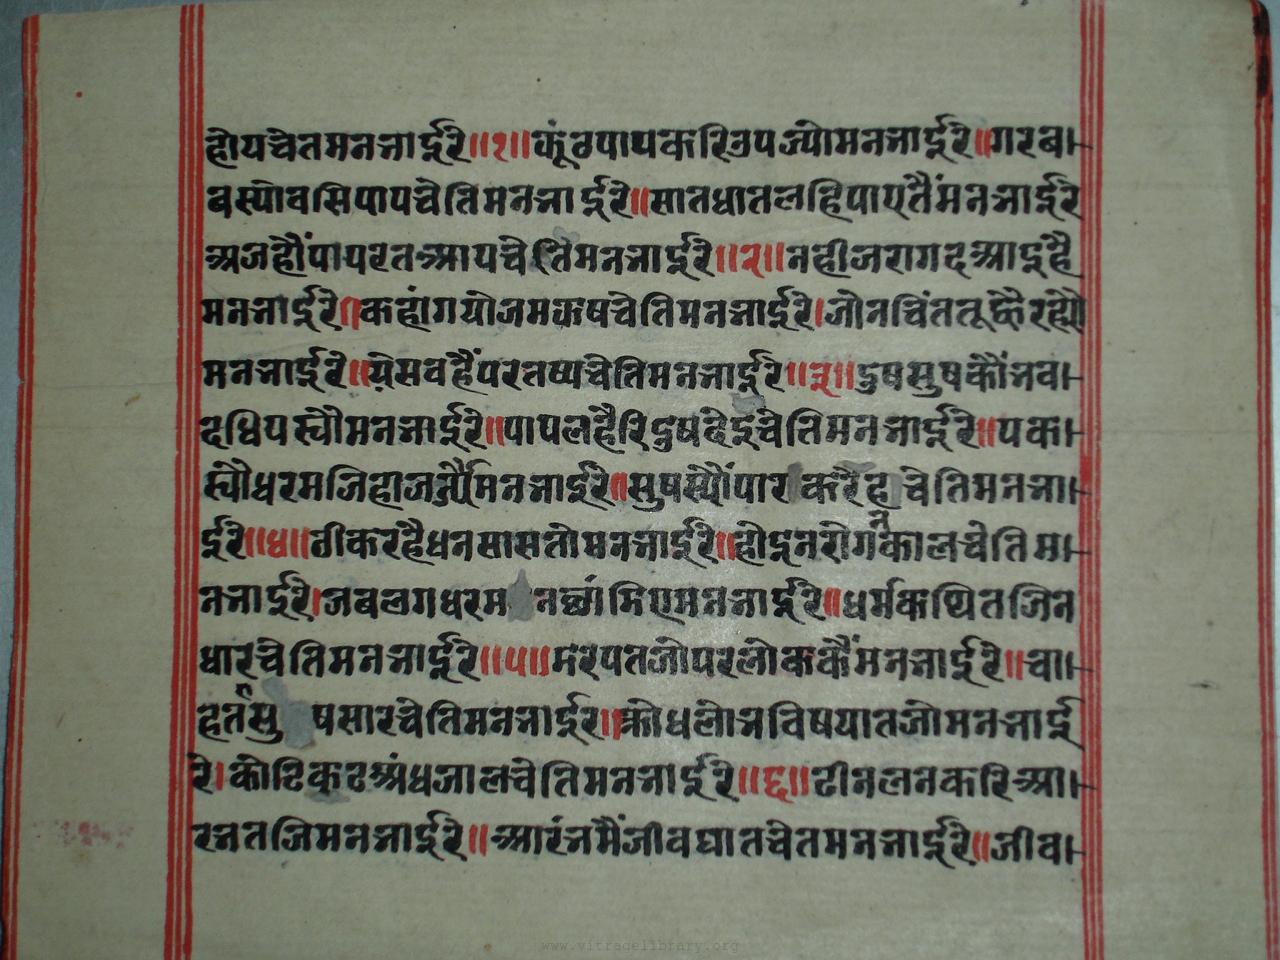 होयचेतमनभाईरे॥१॥कूंठपापकरिउपज्योमनभाईरे॥गरब
बस्योवसिपापचेतिमनभाईरे॥सातधातलहिपाएतैंमनभाईरे
अजहौंपापरतआयचेतिमनभाईरे॥२॥नहीजरागदआइहै
मनभाईरे।कहांगयोजमकषचेतिमनभाईरे।जोनचिंततूह्वैरह्यौ
मनभाईरे॥येसवहैंपरतष्यचेतिमनभाईरे॥३॥दुषसुषकौंभव
दधिपस्यौमनभाईरे॥पापलहैरिदुषदेइचेतिमनभाईरे॥पक
स्यौधरमजिहाजर्त्यैमनभाईरे॥सुषस्यौंपार करैह चेतिमनभा
ईरे॥४॥ठीकरहैधनसासतोमनभाईरे॥होइनरोगनकालचेतिम
नभाईरे।जबलगधरम नछ्यांमिएमनभाईरे॥धर्मकथितजिन
धारचेतिमनभाईरे॥५॥मरपतजोपरलोककैंमनभाईरे॥चा
हतसु षसारचेतिमनभाईरे॥क्रोधलोभविषयातजोमनभाई
रे।कोटिकटअंधजालचेतिमनभाईरे॥६॥ढीनलनकरिआ
रभतजिमनभाईरे॥आरंभमैंजीवघातचेतमनभाईरे॥जीव
www.vitragelibrary.org